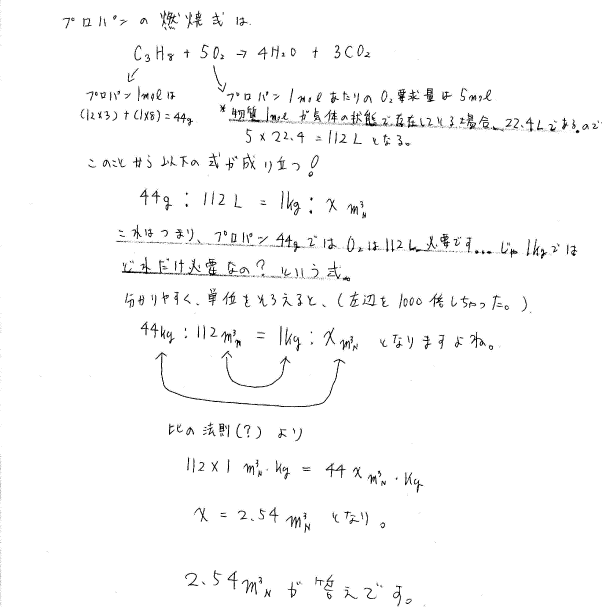 プロパンの燃焼式は
C₃H₈ + 5O₂ → 4H₂O + 3CO₂
プロパン1molは
(12×3)+(1×8)=44g
プロパン1molあたりのO₂要求量は5mol
*物質1molが気体の状態で存在している場合、22.4Lであるので
5×22.4=112Lとなる。
このことから以下の式が成り立つ!
44g : 112L = 1kg : x m³N
これはつまり、プロパン44gではO₂は112L必要です…じゃ1kgでは
どれだけ必要なの?という式。
分かりやすく、単位をそろえると、(左辺を1000倍しちゃった。)
44kg : 112m³N = 1kg : x m³N となりますよね。
比の法則(?)より
112×1 m³N・kg = 44x m³N・kg
x = 2.54 m³N となり。
2.54m³Nが答えです。